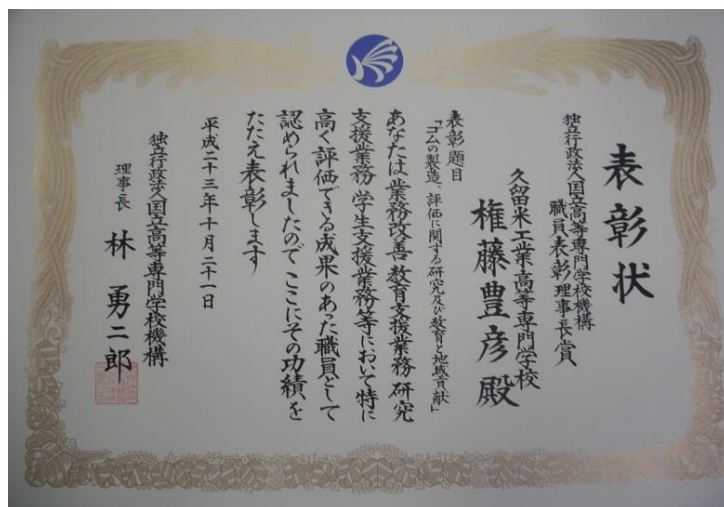 表彰状
独立行政法人国立高等専門学校機構
職員表彰理事長賞
久留米工業高等専門学校
権藤豊彦殿
表彰題目
「ゴムの製造、評価に関する研究及び教育と地域貢献」
あなたは業務改善 教育支援業務 研究
支援業務 学生支援業務等において特に
高く評価できる成果のあった職員として
認められましたのでここにその功績を
たたえ表彰します
平成二十三年十月二十一日
独立行政法人国立高等専門学校機構
理事長 林 勇二郎